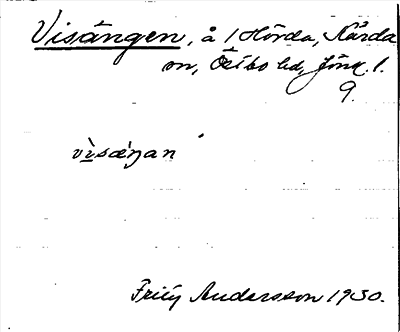 Visängen, å 1 Hörda, Kärda
sn, Östbo hd, Jönk. l.
9.
vìsæŋan
Frity Andersson 1930.